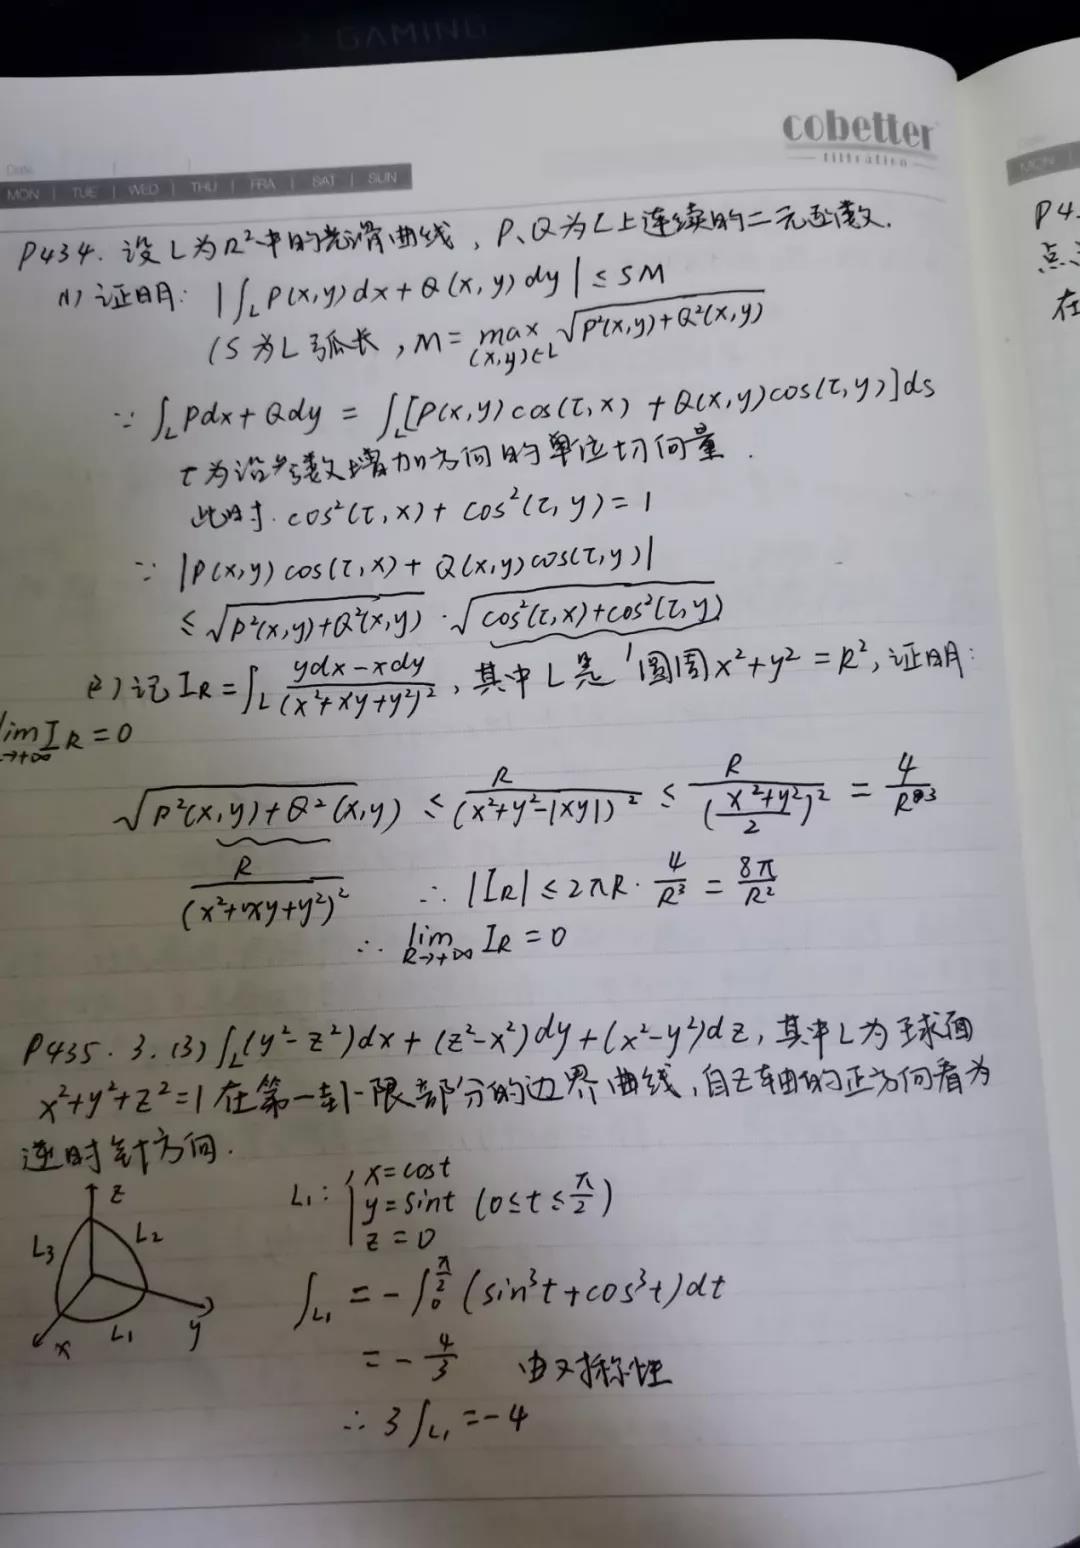 GAMING
cobetter
filtration
Date
MON | TUE | WED | THU | FRA | SAT | SUN
P434. 设L为R²中的光滑曲线，P、Q为L上连续的二元函数.
(1) 证明: |∫_L P(x,y)dx+Q(x,y)dy| ≤ SM
(S为L弧长，M= max_{(x,y)∈L} √(P²(x,y)+Q²(x,y))
∵ ∫_L Pdx+Qdy = ∫_L [P(x,y)cos(τ,x) + Q(x,y)cos(τ,y)]ds
τ为沿参数增加方向的单位切向量.
此时. cos²(τ,x) + cos²(τ,y) = 1
∵ |P(x,y)cos(τ,x)+Q(x,y)cos(τ,y)|
≤ √(P²(x,y)+Q²(x,y)) · √(cos²(τ,x)+cos²(τ,y))
1
(2) 记 I_R = ∫_L (ydx-xdy)/(x²+xy+y²)², 其中L是圆周x²+y²=R², 证明:
lim I_R = 0
→+∞
√(P²(x,y)+Q²(x,y)) ≤ R/(x²+y²-|xy|)² ≤ R/((x²+y²)/2)² = 4/R³
R/(x²+xy+y²)² ∴ |I_R| ≤ 2πR · 4/R³ = 8π/R²
∴ lim_{R→+∞} I_R = 0
P435. 3. (3) ∫_L(y²-z²)dx+(z²-x²)dy+(x²-y²)dz, 其中L为球面
x²+y²+z²=1在第一卦限部分的边界曲线, 自Z轴的正方向看为
逆时针方向.
z
L₃ L₂
x L₁ y
L₁: { x=cost
y=sint (0≤t≤π/2)
z=0
∫_{L₁} = -∫_0^{π/2} (sin³t+cos³t)dt
= -4/3 由对称性
∴ 3∫_{L₁} = -4
MON |
P4
点
在